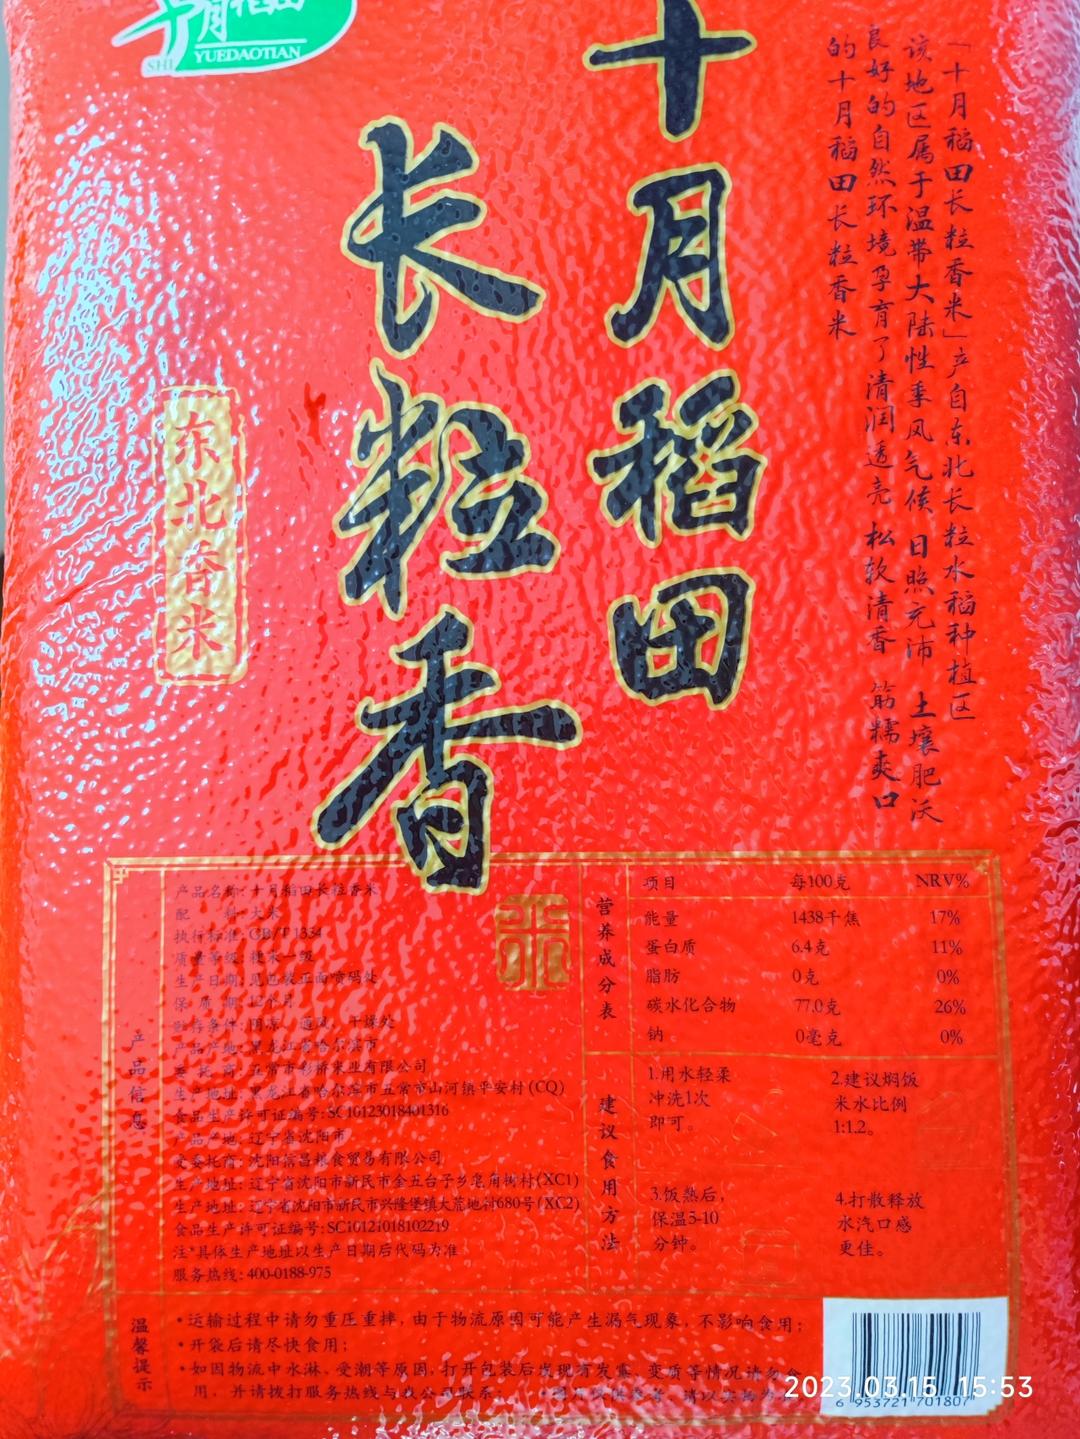 十月稻田
SHI YUEDAOTIAN
十月稻田
长粒香
东北香米
「十月稻田长粒香米」产自东北长粒水稻种植区
该地区属于温带大陆性季风气候 日照充沛 土壤肥沃
良好的自然环境孕育了清润透亮 松软清香 筋糯爽口
的十月稻田长粒香米
产品信息
产品名称:十月稻田长粒香米
配 料:大米
执行标准:GB/T 1354
质量等级:粳米一级
生产日期:见包装正面喷码处
保 质 期:12个月
贮存条件:阴凉、通风、干燥处
产品产地:黑龙江省哈尔滨市
委 托 商:五常市彩桥米业有限公司
生产地址:黑龙江省哈尔滨市五常市山河镇平安村(CQ)
食品生产许可证编号:SC10123018401316
产品产地:辽宁省沈阳市
受委托商:沈阳信昌粮食贸易有限公司
生产地址:辽宁省沈阳市新民市金五台子乡皂角树村(XC1)
生产地址:辽宁省沈阳市新民市兴隆堡镇大荒地村680号(XC2)
食品生产许可证编号:SC10121018102219
注*具体生产地址以生产日期后代码为准
服务热线:400-0188-975
米
营养成分表
项目 每100克 NRV%
能量 1438千焦 17%
蛋白质 6.4克 11%
脂肪 0克 0%
碳水化合物 77.0克 26%
钠 0毫克 0%
建议食用方法
1.用水轻柔
冲洗1次
即可。
2.建议焖饭
米水比例
1:1.2。
3.饭熟后,
保温5-10
分钟。
4.打散释放
水汽口感
更佳。
温馨提示
•运输过程中请勿重压重摔,由于物流原因可能产生漏气现象,不影响食用;
•开袋后请尽快食用;
•如因物流中水淋、受潮等原因,打开包装后发现有发霉、变质等情况请勿食
用,并请拨打服务热线与我公司联系;
6 953721 701807
2023.03.15 15:53